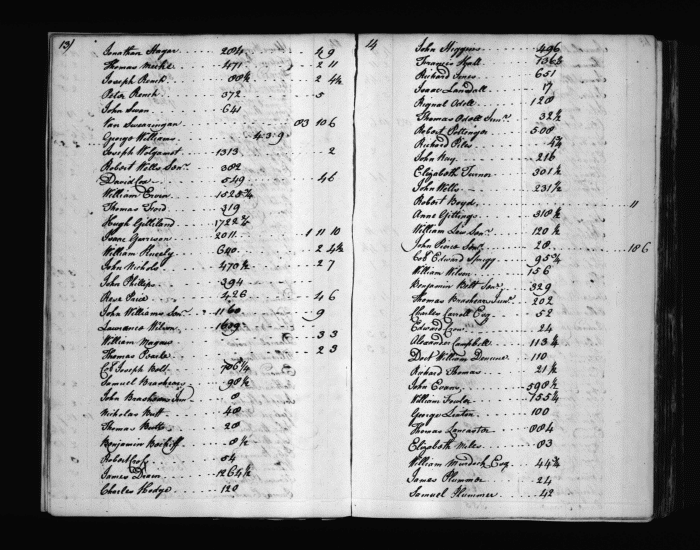 13/
Jonathan Hagar 204 4 9
Thomas 471 2 11
Joseph Rench 88½ 2 4½
Peter Rench 372 5
John Swan 641
Van Swearingan 83 10 6
George Williams 439
Joseph Wolgamot 1313 2
Robert Wells Senr. 302
David Cox 549 4 6
William Erwin
Thomas Ford 319
Hugh Gilliland
Isaac Garrison 2011 1 11 10
William 640 2 4½
John Nichols 470½ 2 7
John Phillips 394
Rese Price 426 4 6
John Williams Senr. 1160 9
Lawrence Wilson 1609
William Magaw 3 3
Thomas 2 3
Col Joseph Belt
Samuel Brashears 90½
John Brashears Junr 8
Nicholas Butt 40
Thomas Butt 20
Benjamin 8½
Robert Cross 54
James Drain 1264½
Charles Hodge 120
14
John Higgins 496
Francis Hall
Richard Jones 651
Isaac Lansdall 17
Rignal Odell 128
Thomas Odell Junr. 32½
Robert Pottenger 500
Richard Piles
John Ray 216
Elizabeth Turner 301½
John Wells 231½
Robert Boyd 11
Anne Gittings 310½
William 120½
John Senr. 20 18 6
Col Edward Sprigg
William Wilson 156
Benjamin Belt Senr. 329
Thomas Brashears Junr. 202
Charles Carroll Esq. 52
Edward Crow 24
Alexander Campbell
Doct William 110
Richard Thomas 21½
John Evans 590½
William Fowler
George Linton 100
Thomas Lancaster 884
Elizabeth Miles 83
William Murdock Esq.
James Plummer 24
Samuel Plummer 42